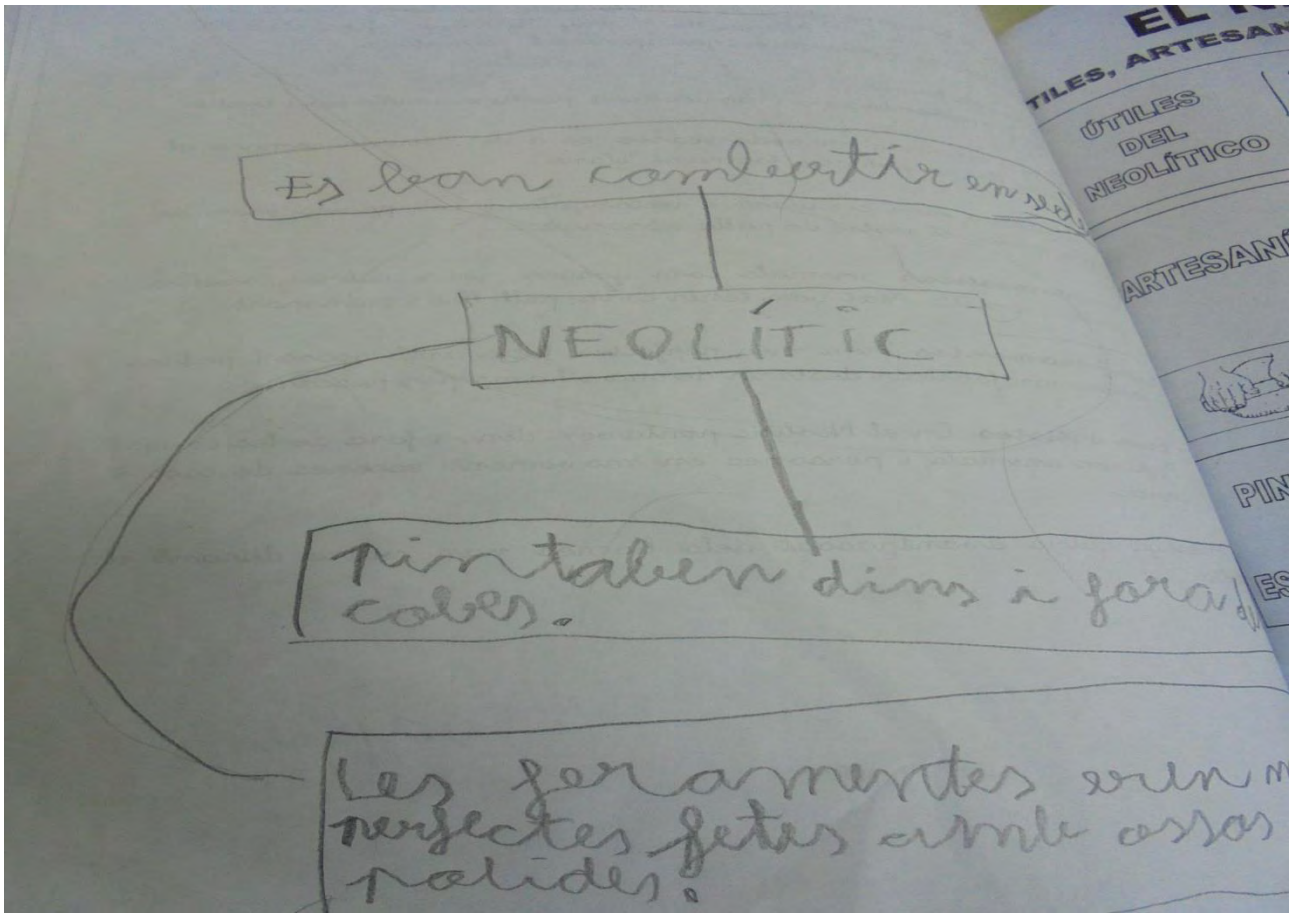 Es ban combertir en sede
NEOLÍTIC
pintaben dins i fora
cobes.
Les feramentes eren m
perfectes fetes amb ossos
polides.
EL N
TILES, ARTESAN
ÚTILES
DEL
NEOLÍTICO
ARTESANÍ
PIN
ES